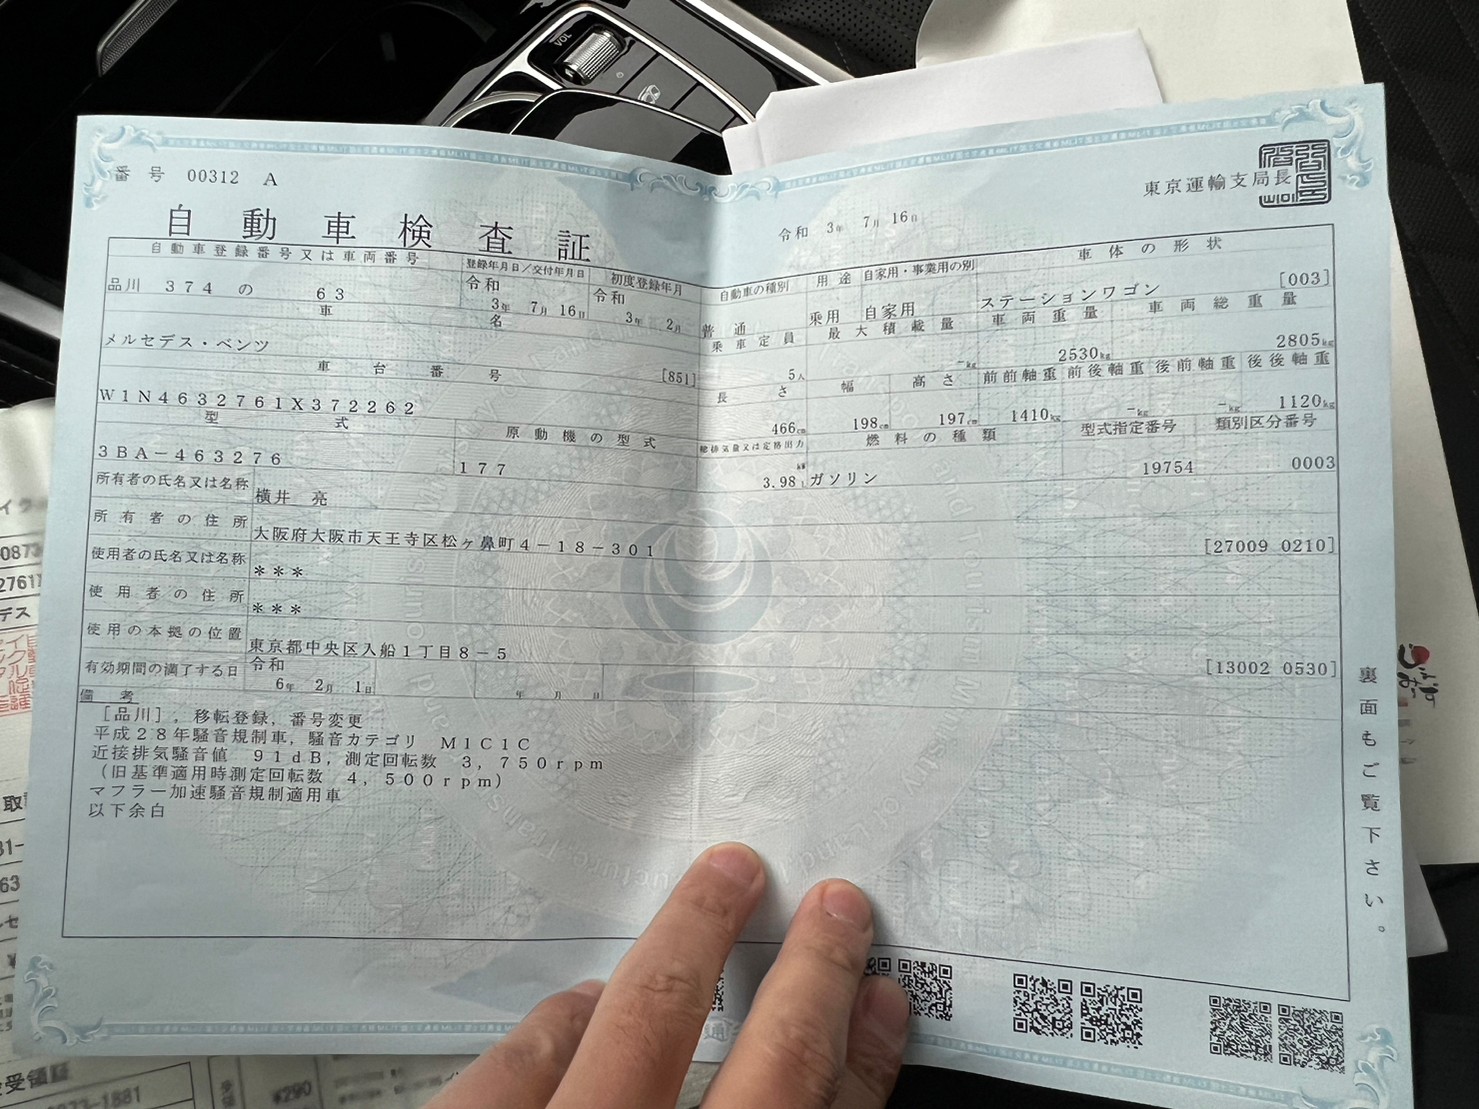 VOL
番号 00312 A
東京運輸支局長
自動車検査証
令和 3年 7月 16日
自動車登録番号又は車両番号
登録年月日／交付年月日
初度登録年月
自動車の種別
用途
自家用・事業用の別
車体の形状
品川 374 の 63
令和 3年 7月 16日
令和 3年 2月
普通
乗用
自家用
ステーションワゴン [003]
車名
乗車定員
最大積載量
車両重量
車両総重量
メルセデス・ベンツ [851]
5人
-kg
2530kg
2805kg
車台番号
長さ
幅
高さ
前前軸重
前後軸重
後前軸重
後後軸重
W1N4632761X372262
466cm
198cm
197cm
1410kg
-kg
-kg
1120kg
型式
原動機の型式
総排気量又は定格出力
燃料の種類
型式指定番号
類別区分番号
3BA-463276
177
kW
3.98L
ガソリン
19754
0003
所有者の氏名又は名称 横井 亮
所有者の住所 大阪府大阪市天王寺区松ヶ鼻町4-18-301 [27009 0210]
使用者の氏名又は名称 ***
使用者の住所 ***
使用の本拠の位置 東京都中央区入船1丁目8-5 [13002 0530]
有効期間の満了する日 令和 6年 2月 1日 年 月 日
備考
[品川], 移転登録, 番号変更
平成28年騒音規制車, 騒音カテゴリ M1C1C
近接排気騒音値 91dB, 測定回転数 3,750rpm
(旧基準適用時測定回転数 4,500rpm)
マフラー加速騒音規制適用車
以下余白
裏面もご覧下さい。
0873
2761
デス
取
受領証
0873-1881
¥290